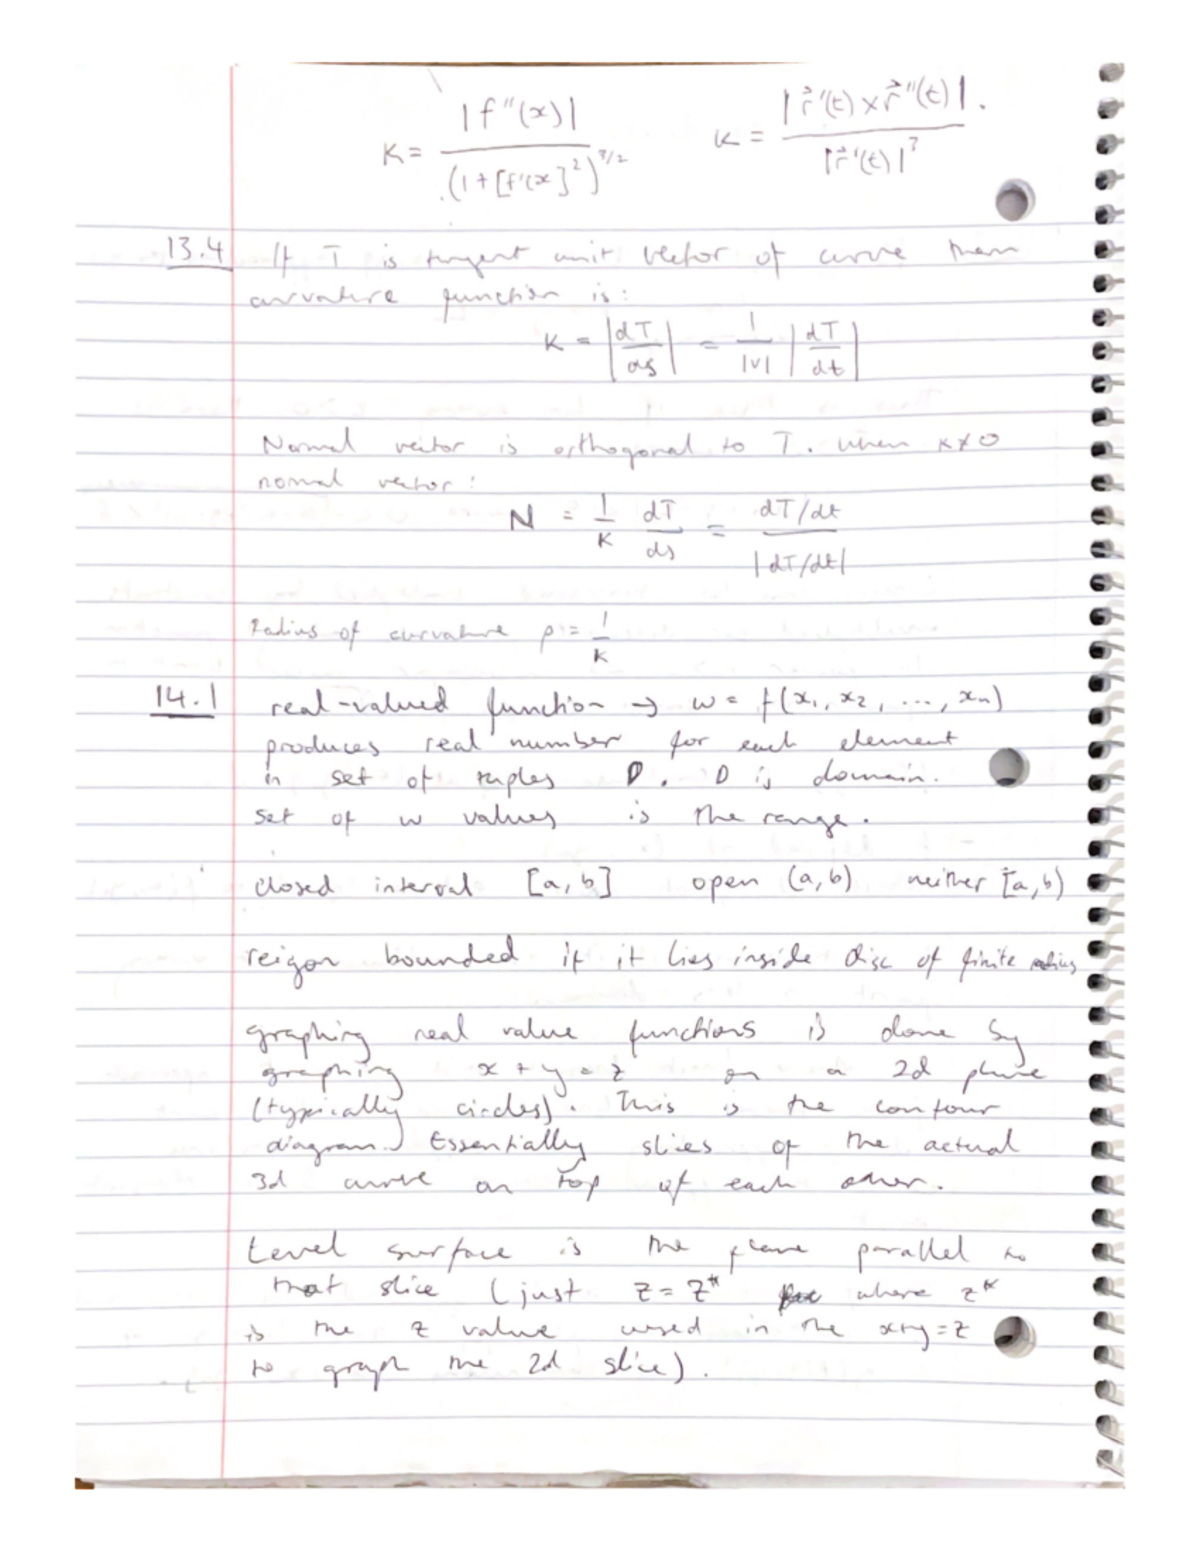 K = |f''(x)| / (1+[f'(x]²)^3/2    K = |r⃗'(t) × r⃗''(t)|. / |r⃗'(t)|³
13.4 If T is tangent unit vector of curve then
curvature function is:
K = |dT/ds| = 1/|v| |dT/dt|
Normal vector is orthogonal to T. when κ≠0
normal vector:
N = 1/K dT/ds = dT/dt / |dT/dt|
Radius of curvature ρ = 1/K
14.1 real-valued function → w = f(x₁, x₂, ..., xn)
produces real number for each element
in set of tuples D. D is domain.
set of w values is the range.
closed interval [a,b] open (a,b) neither [a,b)
reigon bounded if it lies inside disc of finite radius
graphing real value functions is done by
graphing x + y = z on a 2d plane
(typically circles). This is the contour
diagram. Essentially slices of the actual
3d curve on top of each other.
Level surface is the plane parallel to
that slice (just z = z* where z*
is the z value used in the x+y=z
to graph the 2d slice).